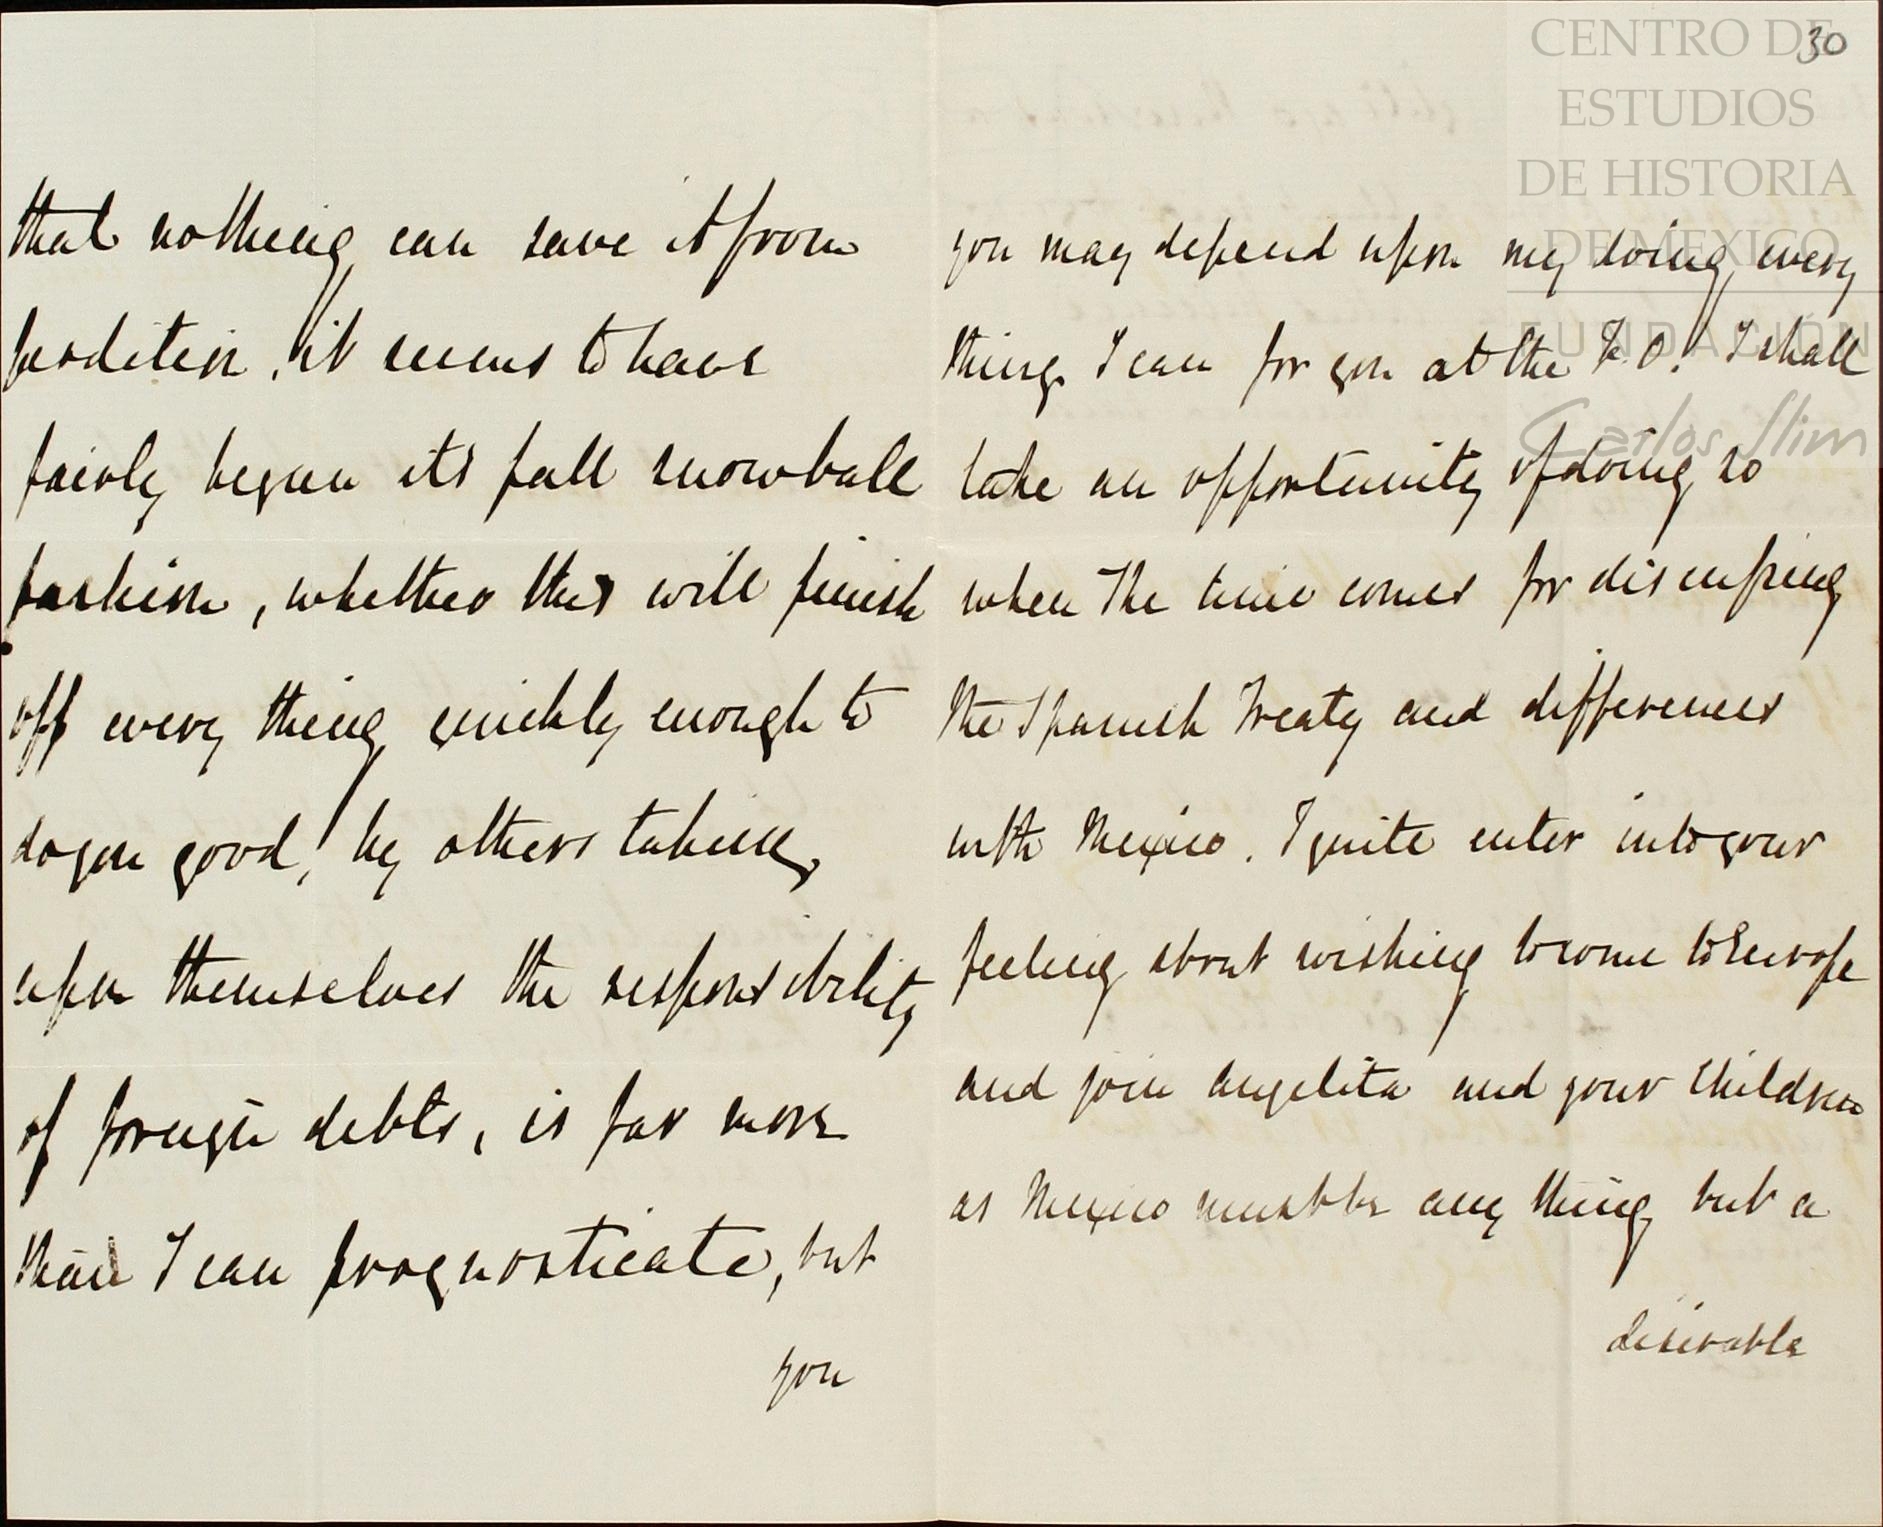 that nothing can save it from
perdition, it seems to have
fairly begun its fall snowball
fashion, whether this will finish
off every thing quickly enough to
do you good, by others taking
upon themselves the responsibility
of foreign debts, is far more
than I can prognosticate, but
you
30
you may depend upon my doing every
thing I can for you at the F.O. I shall
take an opportunity of doing so
when the time comes for discussing
the Spanish Treaty and differences
with Mexico. I quite enter into your
feeling about wishing to come to Europe
and join Angelita and your children
as Mexico must be any thing but a
desirable
CENTRO DE
ESTUDIOS
DE HISTORIA
DE MEXICO
FUNDACIÓN
Carlos Slim